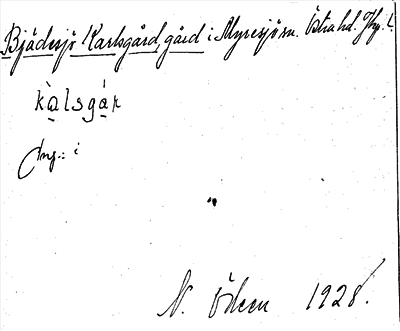 Bjädesjö Karlsgård, gård i Myresjö sn. Östra hd. Jkp. l.
kàlsgáṛ
Ang.: i
N. Ödeen 1928.